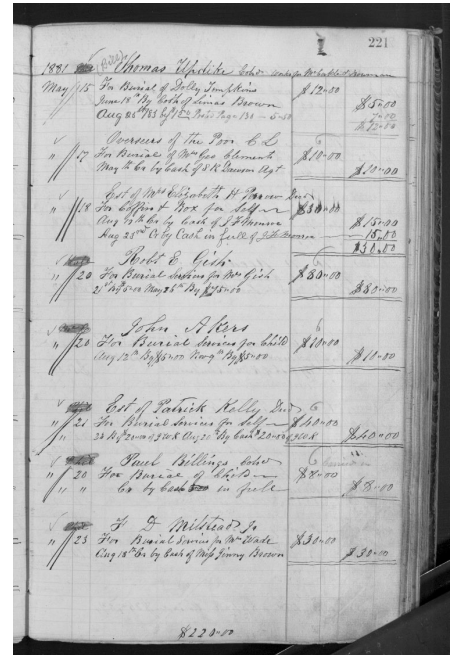 221
1881 Thomas Updike Cold
May 15 For Burial of Dolly Simpkins $12=00
June 18th By Cash of Brown $5=00
Aug 25th 7=00
$12=00
Overseers of the Poor C L
" 17 For Burial of Mrs Geo Clements $10=00
May Cr by Cash of S K Dawson Agt $10=00
Est of Mrs Elizabeth H Decd
" 18 For Coffin & Box for Self $30=00
Aug Cr by Cash of $15=00
Aug 23rd Cr by Cash in full of 15.00
$30.00
Robt E Gish
" 20 For Burial Services for Mrs Gish $80=00
21st By 5=00 May 25th By $75=00 $80=00
John A Kers
" 20 For Burial Services for Child $10=00
Aug 12th By $5=00 Nov 9th By $5=00 $10=00
Est of Patrick Kelly Decd
" 21 For Burial Services for Self $40=00
Aug 20 By Cash 20=00 $40=00
Paul Billings Cold
" 20 For Burial of Child $8=00
" " Cr by Cash in full $8=00
F D Milstead Jr
" 23 For Burial Services for Mrs Wade $30=00
Aug 18th Cr by Cash of Miss Jinny Brown $30=00
$220=00